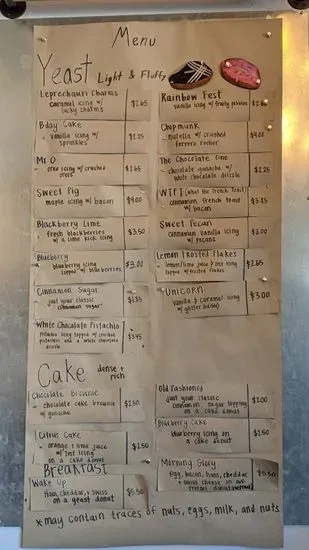 Menu
Yeast Light & Fluffy
Leprechaun Charms
caramel icing w/
lucky charms
$2.65
Bday Cake
vanilla icing w/
sprinkles
$2.25
Mr O
oreo icing w/ crushed
oreos
$2.65
Sweet Pig
maple icing w/ bacon
$4.00
Blackberry Lime
fresh blackberries
w/ a lime kick icing
$3.50
Blueberry
blueberry icing
topped w/ blueberries
$3.00
Cinnamon Sugar
just your classic
cinnamon sugar
$1.85
White Chocolate Pistachio
pistachio icing topped w/ crushed
pistachios and a white chocolate
drizzle
$3.45
Rainbow Fest
vanilla icing w/ fruity pebbles
Chipmunk
nutella w/ crushed
ferrero rocher
$4.00
The Chocolate One
chocolate ganache w/
white chocolate drizzle
$2.25
WTF! (What the French Toast)
cinnamon french toast
w/ bacon
$3.85
Sweet Pecan
cinnamon vanilla icing
w/ pecans
$3.00
Lemon Frosted Flakes
lemon/lime juice & zest icing
topped w/ frosted flakes
$2.65
UNICORN
vanilla & caramel icing
w/ glitter
$3.00
Cake dense + rich
Chocolate Brownie
chocolate cake brownie
w/ ganache
$2.50
Citrus Cake
orange + lime juice
w/ zest icing
on a cake donut
$2.50
Old Fashioned
just your classic
cinnamon sugar topping
on a cake donut
$2.00
Blueberry Cake
blueberry icing on
a cake donut
$2.50
Breakfast
Wake Up
Ham, cheddar, + swiss
on a yeast donut
$5.50
Morning Glory
egg, bacon, ham, cheddar
+ swiss cheese in an
$5.50
*may contain traces of nuts, eggs, milk, and nuts